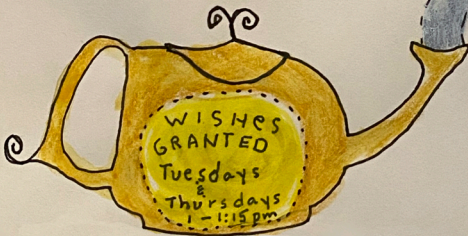 WISHES
GRANTED
Tuesdays
&
Thursdays
1 - 1:15 pm